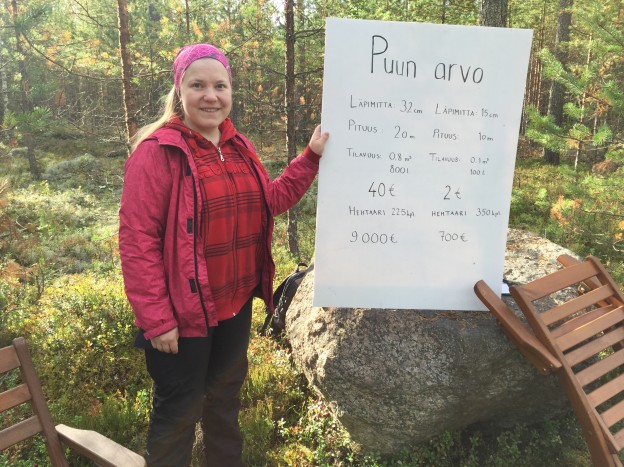 Puun arvo
LÄPIMITTA 32 cm LÄPIMITTA 15 cm
PITUUS 20 m PITUUS 10 m
TILAVUUS 0.8 m³ TILAVUUS 0.1 m³
800 l 100 l
40 € 2 €
HEHTAARI 225 kpl HEHTAARI 350 kpl
9 000 € 700 €